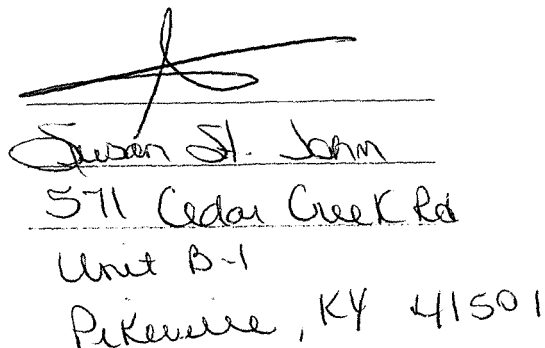 Susan St. John
571 Cedar Creek Rd
Unit B-1
Pikeville, KY 41501